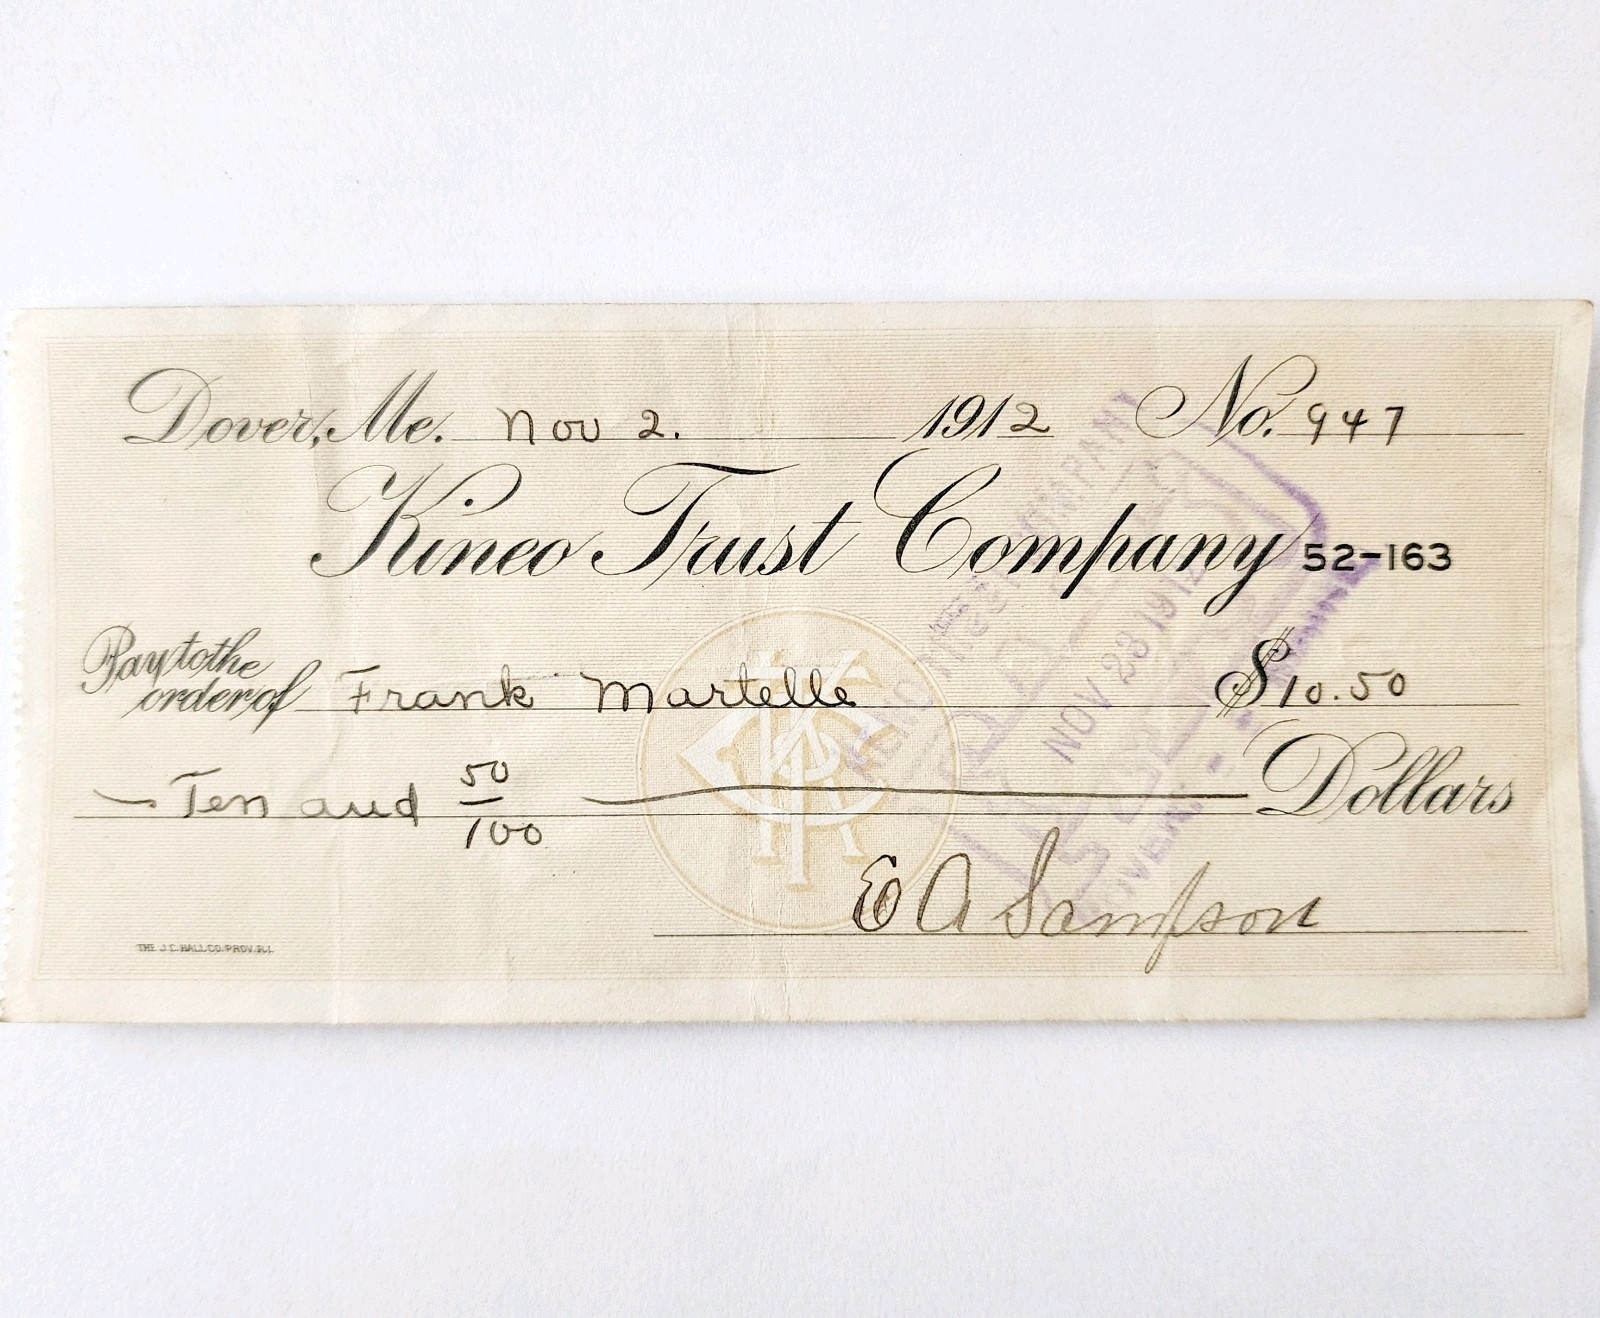 Dover, Me. Nov 2. 1912 No. 947
Kineo Trust Company 52-163
Pay to the order of Frank Martelle $10.50
Ten and 50/100 Dollars
E A Sampson
THE J.C. HALL CO. PROV. R.I.
COMPANY
NOV 23 1912
DOVER